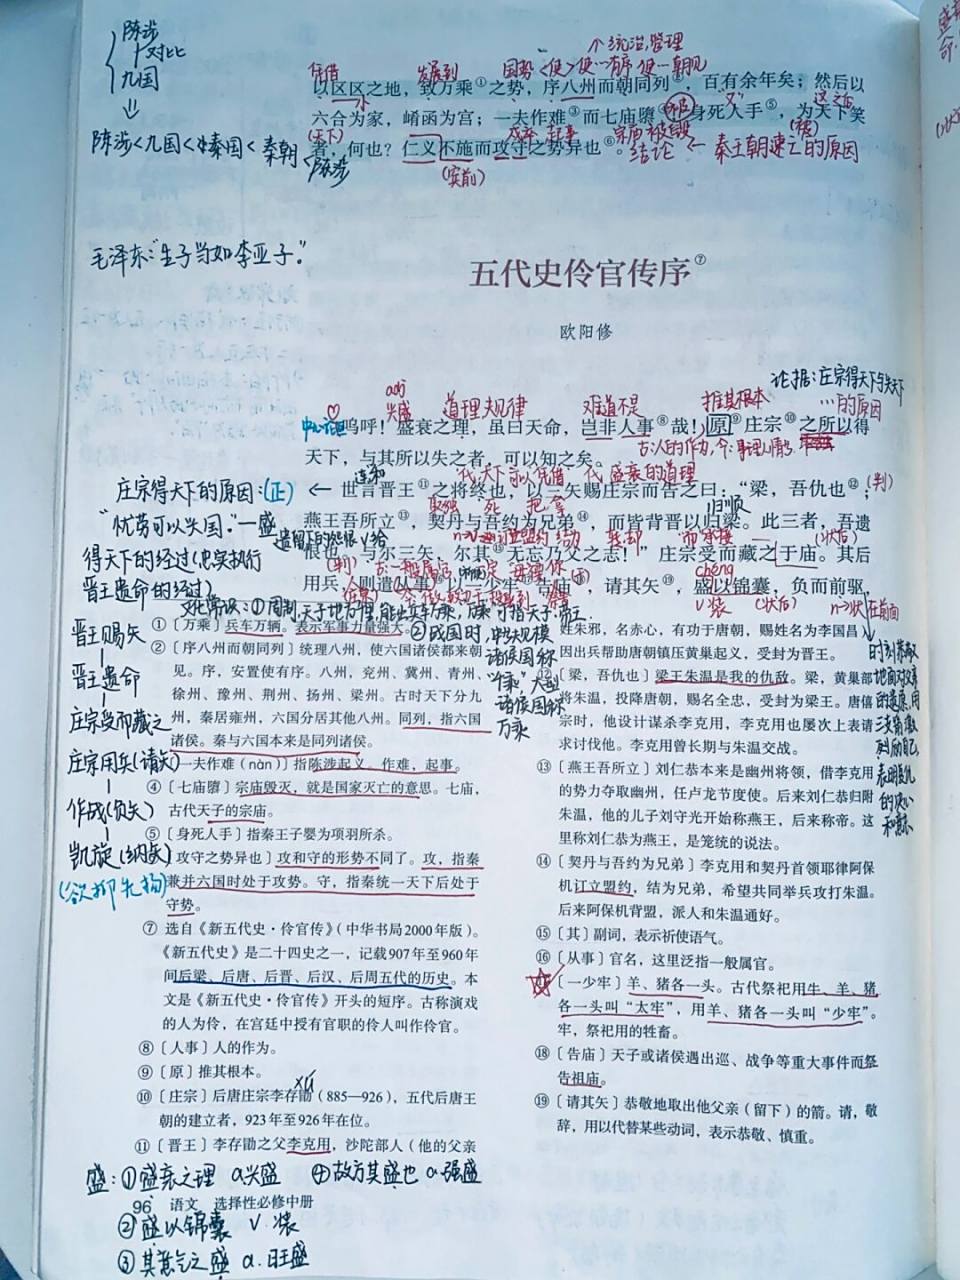 陈涉
对比
九国
陈涉<九国<秦国<秦朝<陈涉
个统治,管理
凭借
发展到
以区区之地，致万乘①之势，序八州而朝同列②，百有余年矣；然后以
小
六合为家，崤函为宫；一夫作难③而七庙隳④，身死人手⑤，为天下笑
(天下)
宗庙被毁
者，何也？仁义不施而攻守之势异也⑥。
结论 ← 秦王朝速亡的原因
毛泽东:"生子当如李亚子."
五代史伶官传序⑦
欧阳修
论据:庄宗得天下与失天下
的原因
adj
兴盛
道理规律
难道不是
推其根本
呜呼！盛衰之理，虽曰天命，岂非人事⑧哉！原⑨庄宗⑩之所以得
天下，与其所以失之者，可以知之矣。
庄宗得天下的原因:(正)
世言晋王⑪之将终也，以三矢赐庄宗而告之曰："梁，吾仇也⑫；
(判)
"忧劳可以兴国."—盛
归顺
燕王吾所立⑬，契丹与吾约为兄弟⑭，而皆背晋以归梁。此三者，吾遗
得天下的经过(忠实执行
晋王遗命的经过)
恨也。与尔三矢，尔其⑮无忘乃父之志！"庄宗受而藏之于庙。其后
(状后)
用兵，则遣从事⑯以一少牢⑰告庙⑱，请其矢⑲，盛以锦囊，负而前驱，
chéng
V 装
(状后)
n->状 在前面
文化常识:①周制,天子地方千里,能出兵车万乘,后来可指天子,帝王.
②战国时,中小规模
诸侯国称
"千乘",大型
诸侯国称
万乘
晋王赐矢
晋王遗命
庄宗受而藏之
庄宗用兵(请矢)
作战(负矢)
凯旋(纳矢)
(欲抑先扬)
①〔万乘〕兵车万辆。表示军事力量强大。
②〔序八州而朝同列〕统理八州，使六国诸侯都来朝
见。序，安置使有序。八州，兖州、冀州、青州、
徐州、豫州、荆州、扬州、梁州。古时天下分九
州，秦居雍州，六国分居其他八州。同列，指六国
诸侯。秦与六国本来是同列诸侯。
一夫作难（nàn）〕指陈涉起义。作难，起事。
④〔七庙隳〕宗庙毁灭，就是国家灭亡的意思。七庙，
古代天子的宗庙。
⑤〔身死人手〕指秦王子婴为项羽所杀。
攻守之势异也〕攻和守的形势不同了。攻，指秦
兼并六国时处于攻势。守，指秦统一天下后处于
守势。
⑦ 选自《新五代史·伶官传》（中华书局2000年版）。
《新五代史》是二十四史之一，记载907年至960年
间后梁、后唐、后晋、后汉、后周五代的历史。本
文是《新五代史·伶官传》开头的短序。古称演戏
的人为伶，在宫廷中授有官职的伶人叫作伶官。
⑧〔人事〕人的作为。
⑨〔原〕推其根本。
xù
⑩〔庄宗〕后唐庄宗李存勖（885—926），五代后唐王
朝的建立者，923年至926年在位。
⑪〔晋王〕李存勖之父李克用，沙陀部人（他的父亲
姓朱邪，名赤心，有功于唐朝，赐姓名为李国昌）
因出兵帮助唐朝镇压黄巢起义，受封为晋王。
〔梁，吾仇也〕梁王朱温是我的仇敌。梁，黄巢部
将朱温，投降唐朝，赐名全忠，受封为梁王。唐僖
宗时，他设计谋杀李克用，李克用也屡次上表请
求讨伐他。李克用曾长期与朱温交战。
⑬〔燕王吾所立〕刘仁恭本来是幽州将领，借李克用
的势力夺取幽州，任卢龙节度使。后来刘仁恭归附
朱温，他的儿子刘守光开始称燕王，后来称帝。这
里称刘仁恭为燕王，是笼统的说法。
⑭〔契丹与吾约为兄弟〕李克用和契丹首领耶律阿保
机订立盟约，结为兄弟，希望共同举兵攻打朱温。
后来阿保机背盟，派人和朱温通好。
⑮〔其〕副词，表示祈使语气。
⑯〔从事〕官名，这里泛指一般属官。
〔一少牢〕羊、猪各一头。古代祭祀用牛、羊、猪
各一头叫"太牢"，用羊、猪各一头叫"少牢"。
牢，祭祀用的牲畜。
⑱〔告庙〕天子或诸侯遇出巡、战争等重大事件而祭
告祖庙。
⑲〔请其矢〕恭敬地取出他父亲（留下）的箭。请，敬
辞，用以代替某些动词，表示恭敬、慎重。
盛:①盛衰之理 a兴盛 ④故方其盛也 a.强盛
96 语文 选择性必修中册
②盛以锦囊 V.装
③其意气之盛 a.旺盛